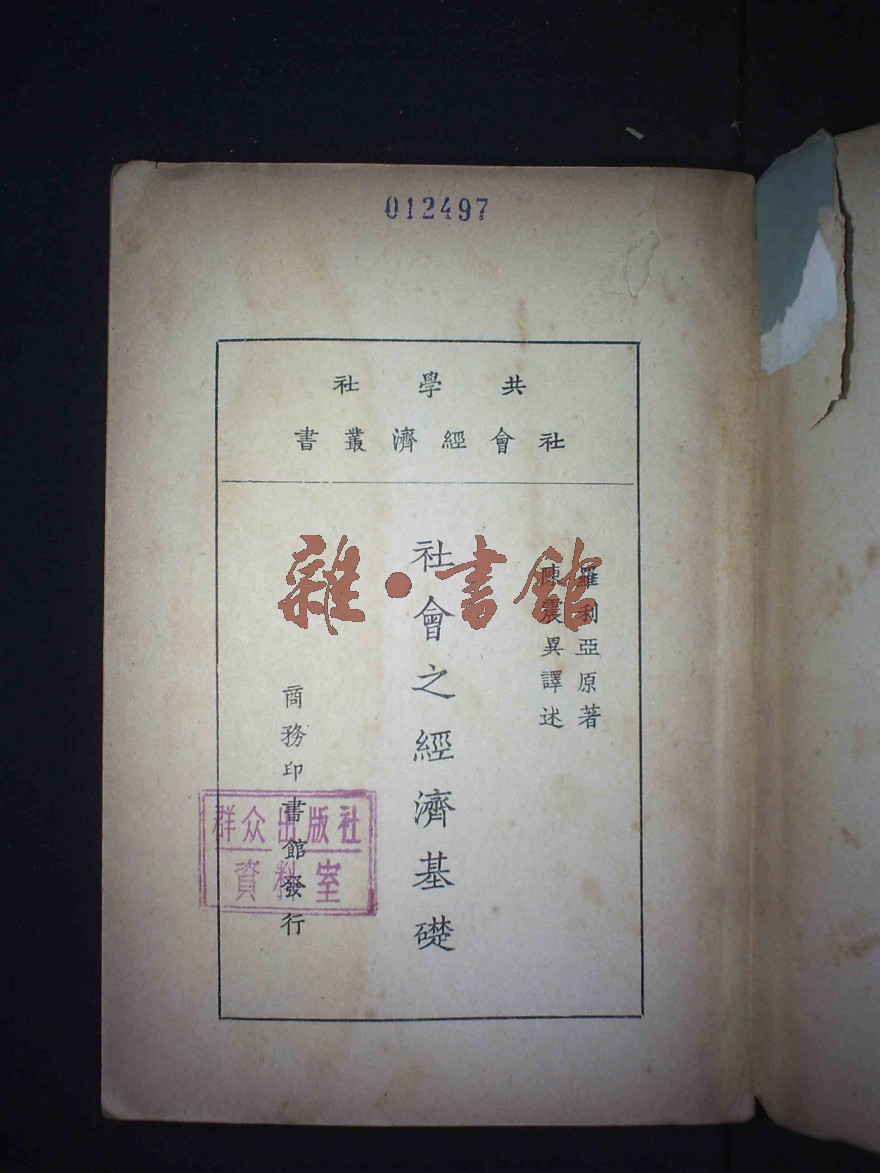 012497
共學社
社會經濟叢書
羅利亞原著
陳震異譯述
社會之經濟基礎
商務印書館發行
雜·書館
群众出版社
資料室